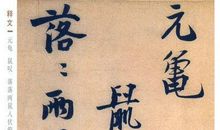 元龜
鼠
落〻兩
释文一
元龟 鼠
落落两鼠人伏